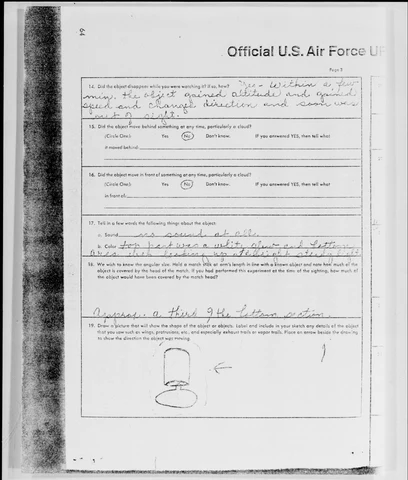 64
Official U.S. Air Force U
Page 3
14. Did the object disappear while you were watching it? If so, how? Yes - Within a few
min. the object gained altitude and gained
speed and changed direction and soon was
out of sight.
15. Did the object move behind something at any time, particularly a cloud?
(Circle One): Yes No Don't know. If you answered YES, then tell what
it moved behind:
16. Did the object move in front of something at any time, particularly a cloud?
(Circle One): Yes No Don't know. If you answered YES, then tell what
in front of:
17. Tell in a few words the following things about the object:
a. Sound no sound at all
b. Color top part was a white glow and bottom
18. We wish to know the angular size. Hold a match stick at arm's length in line with a known object and note how much of the
object is covered by the head of the match. If you had performed this experiment at the time of the sighting, how much of
the object would have been covered by the match head?
Approx. a third of the bottom section.
19. Draw a picture that will show the shape of the object or objects. Label and include in your sketch any details of the object
that you saw such as wings, protrusions, etc., and especially exhaust trails or vapor trails. Place an arrow beside the drawing
to show the direction the object was moving.